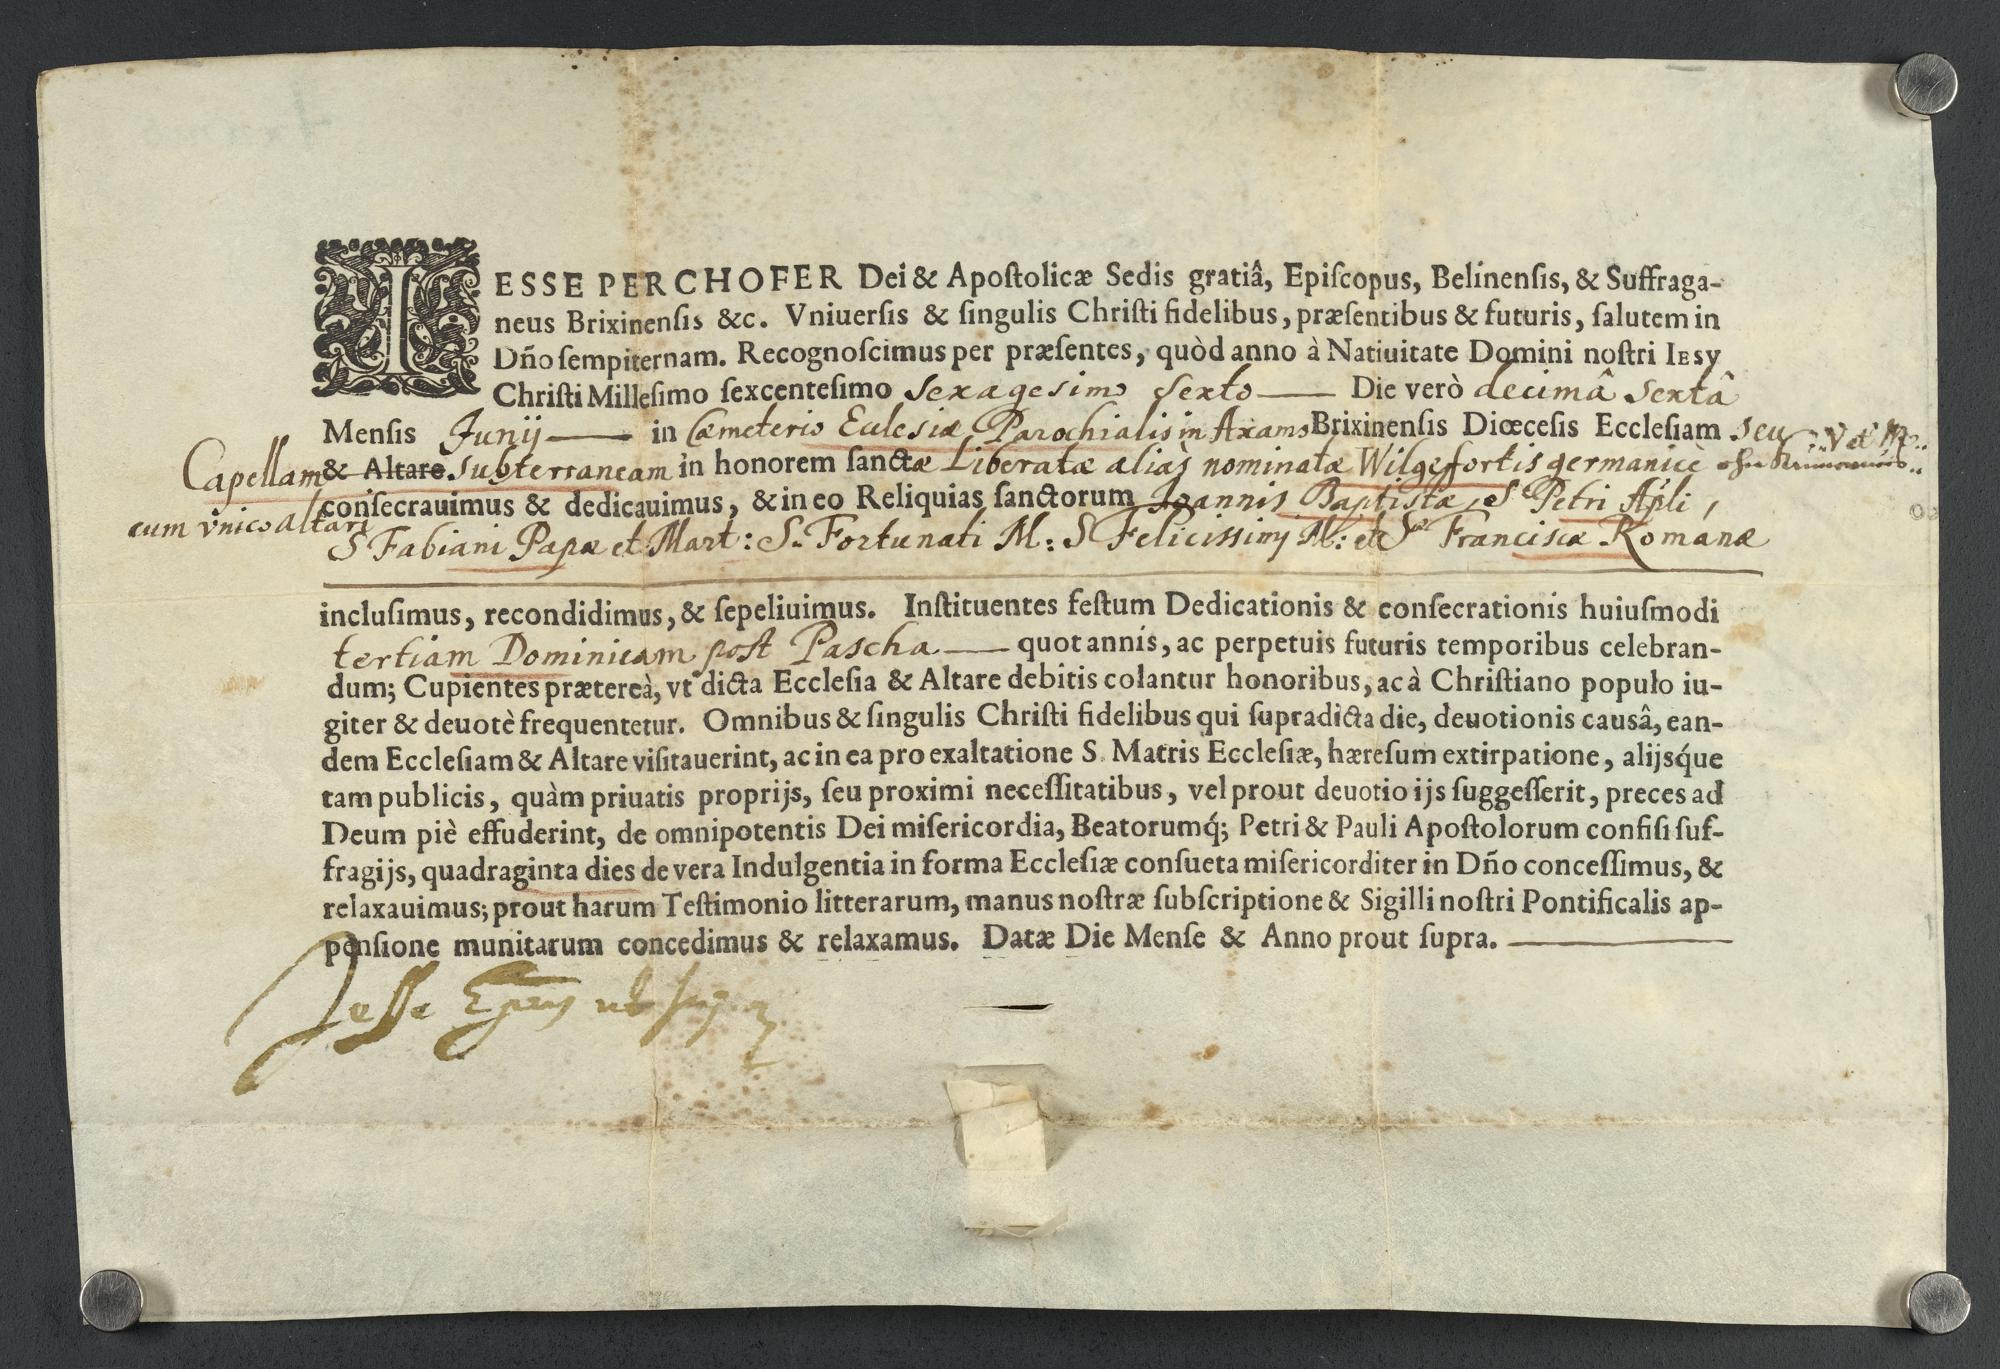 IESSE PERCHOFER Dei & Apoſtolicæ Sedis gratiâ, Epiſcopus, Belinenſis, & Suffraga-
neus Brixinenſis &c. Vniuerſis & ſingulis Chriſti fidelibus, præſentibus & futuris, ſalutem in
Dño ſempiternam. Recognoſcimus per præſentes, quòd anno à Natiuitate Domini noſtri IESV
Chriſti Milleſimo ſexcenteſimo sexagesimo sexto Die verò decimâ sextâ
Menſis Junij in Cæmeterio Ecclesiæ Parochialis in Axams Brixinenſis Diœceſis Eccleſiam seu
Capellam & Altare subterraneam in honorem ſanctæ Liberatæ aliàs nominatæ Wilgefortis germanicè
cum vnico altari
conſecrauimus & dedicauimus, & in eo Reliquias ſanctorum Joannis Baptistæ, S. Petri Apli,
S Fabiani Papæ et Mart: S. Fortunati M: S Felicissimj M: et Sæ Franciscæ Romanæ
incluſimus, recondidimus, & ſepeliuimus. Inſtituentes feſtum Dedicationis & conſecrationis huiuſmodi
tertiam Dominicam post Pascha quotannis, ac perpetuis futuris temporibus celebran-
dum; Cupientes prætereà, vt dicta Eccleſia & Altare debitis colantur honoribus, ac à Chriſtiano populo iu-
giter & deuotè frequentetur. Omnibus & ſingulis Chriſti fidelibus qui ſupradicta die, deuotionis causâ, ean-
dem Eccleſiam & Altare viſitauerint, ac in ea pro exaltatione S. Matris Eccleſiæ, hæreſum extirpatione, alijsq́ue
tam publicis, quàm priuatis proprijs, ſeu proximi neceſſitatibus, vel prout deuotio ijs ſuggeſſerit, preces ad
Deum piè effuderint, de omnipotentis Dei miſericordia, Beatorumq́; Petri & Pauli Apoſtolorum confiſi ſuf-
fragijs, quadraginta dies de vera Indulgentia in forma Eccleſiæ conſueta miſericorditer in Dño conceſſimus, &
relaxauimus; prout harum Teſtimonio litterarum, manus noſtræ ſubſcriptione & Sigilli noſtri Pontificalis ap-
penſione munitarum concedimus & relaxamus. Datæ Die Menſe & Anno prout ſupra.
Jesse Epus